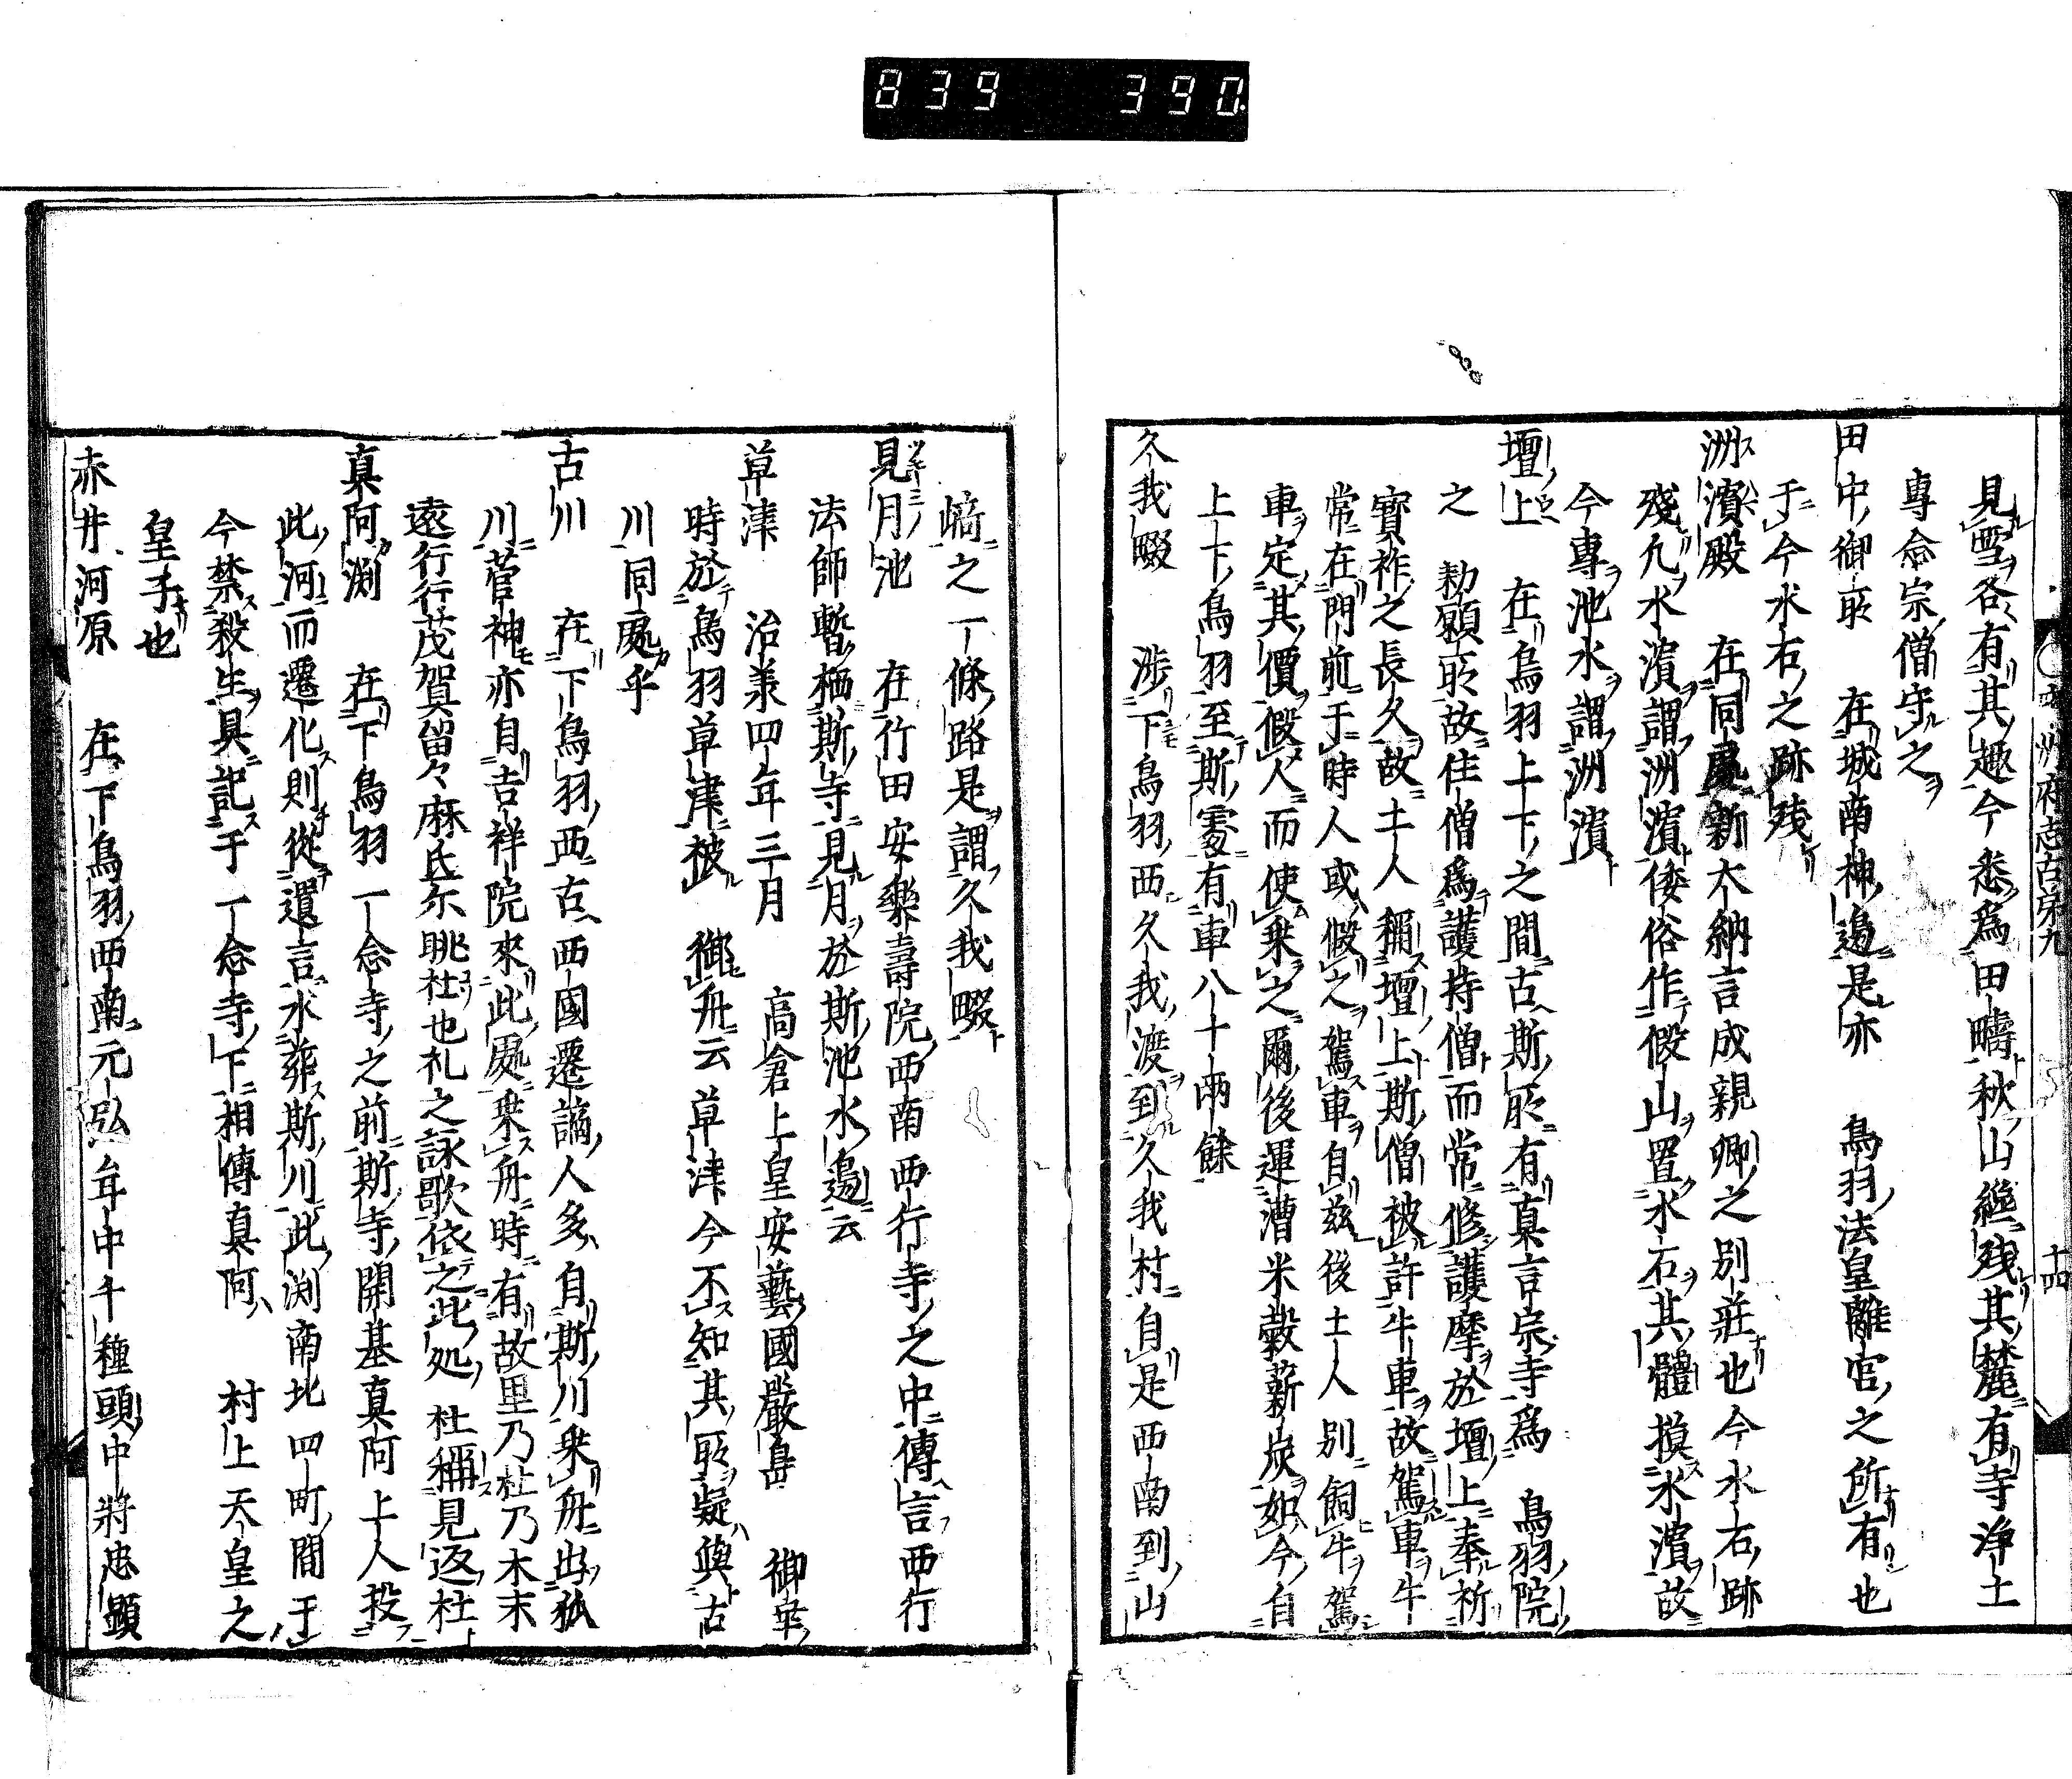 839 390
州府志古第九 十四
見雪各有其趣今悉爲田疇秋山纔残其麓有寺浄土
專念宗僧守之
田中御所 在城南神邊是亦 鳥羽法皇離宮之所有也
于今水石之跡残
洲濱殿 在同處新大納言成親卿之別莊也今水石跡
殘凢水濱謂洲濱倭俗作假山置水石其體摸水濱故
今專池水謂洲濱
壇上 在鳥羽上下之間古斯所有真言宗寺爲 鳥羽院
之 勅願所故住僧爲護持僧而常修護摩於壇上奉祈
寶祚之長久故土人稱壇上斯僧被許牛車故駕車牛
常在門前于時人或假之駕車自茲後土人別飼牛駕
車定其價假人而使乗之爾後運漕米穀薪炭如今自
上下鳥羽至斯處有車八十両餘
久我畷 渉下鳥羽西久我渡到久我村自是西南到山
﨑之一條路是謂久我畷
見月池 在竹田安樂壽院西南西行寺之中傳言西行
法師暫栖斯寺見月於斯池水邊云
草津 治羕四年三月 高倉上皇安藝國嚴島 御幸
時於鳥羽草津被 御舟云草津今不知其所疑與古
川同處乎
古川 在下鳥羽西古西國遷謫人多自斯川乗舟出狐
川菅神亦自吉祥院來此處乗舟時有故里乃杜乃木末
遠行行茂賀留々麻氐尓眺社也礼之詠歌依之此処杜稱見返杜
真阿淵 在下鳥羽一念寺之前斯寺開基真阿上人投
此河而遷化則從遺言水葬斯川此渕南北四町間于
今禁殺生具記于一念寺下相傳真阿 村上天皇之
皇子也
赤井河原 在下鳥羽西南元弘年中千種頭中將忠顕